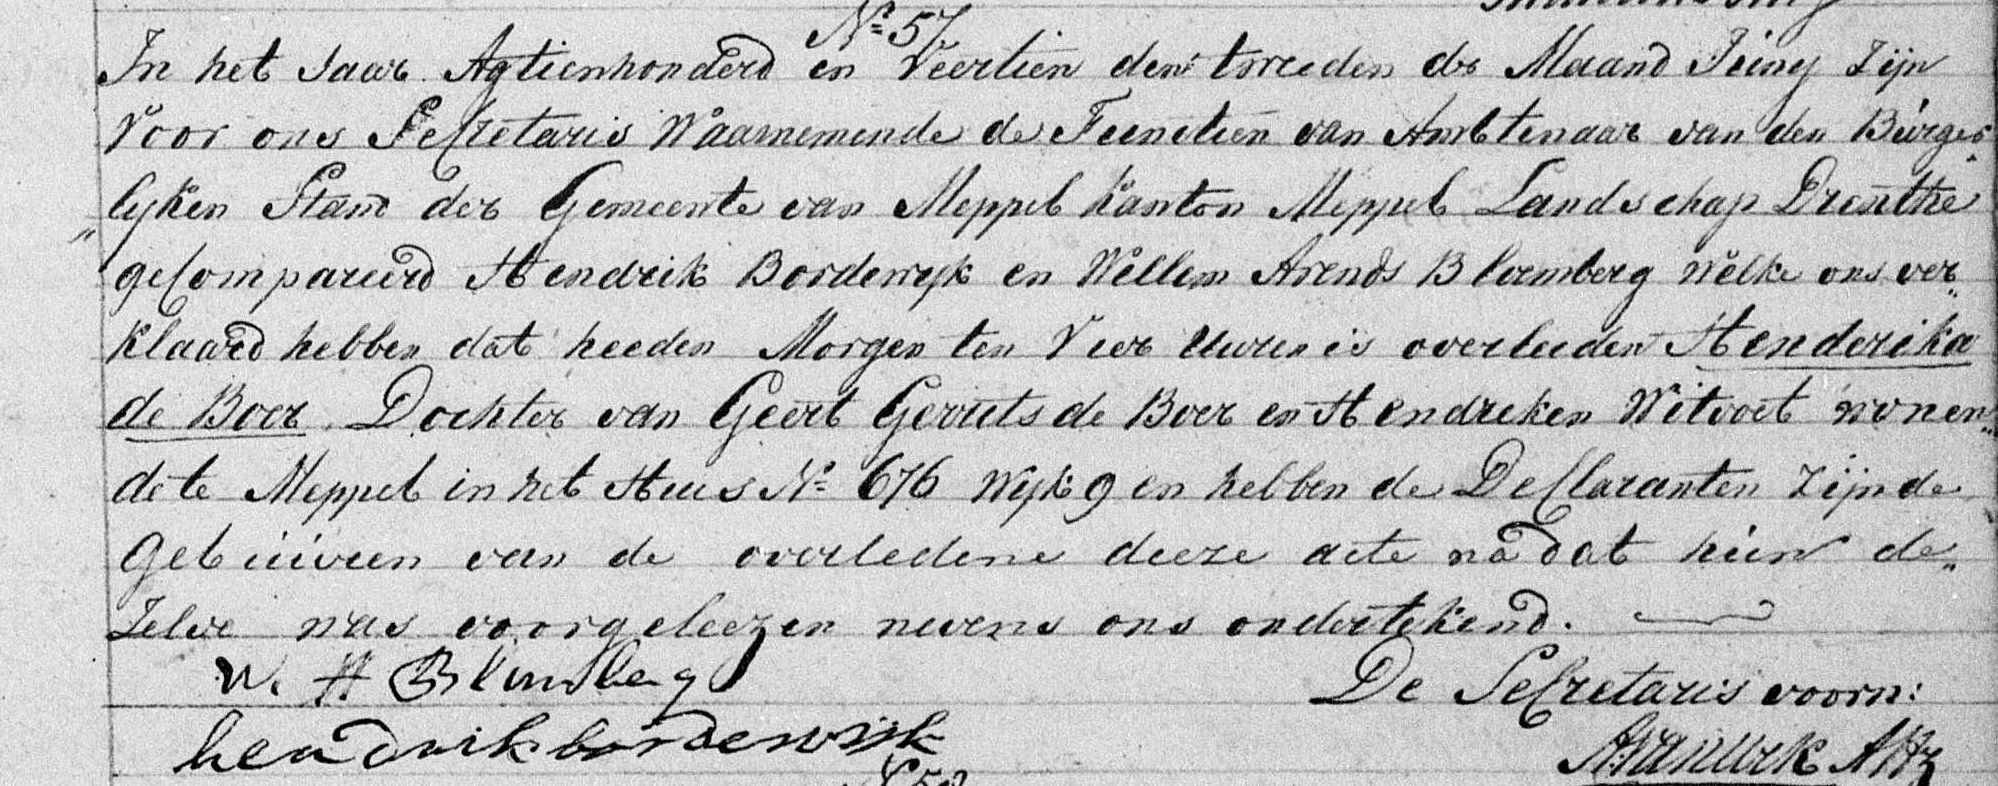 N.º 57
In het Jaar Agtienhonderd en Veertien den tweeden der Maand Juny Zijn
Voor ons Secretaris Waarnemende de Functien van Ambtenaar van den Burger
lyken Stand der Gemeente van Meppel Kanton Meppel Landschap Drenthe
gecompareerd Hendrik Bordewyk en Willem Arends Bloemberg Welke ons ver„
klaard hebben dat heeden Morgen ten Vier Uuren is overleeden Henderika
de Boer Dochter van Geert Gerrits de Boer en Hendreken Witvoet wonen„
de te Meppel in het Huis N.º 676 Wijk 9 en hebben de Declaranten Zijnde
Gebuuren van de overledene deeze acte nadat hun de„
Zelve was voorgeleezen nevens ons ondertekend.
W. A Blumberg De Secretaris voorn:
hendrik bordewijk